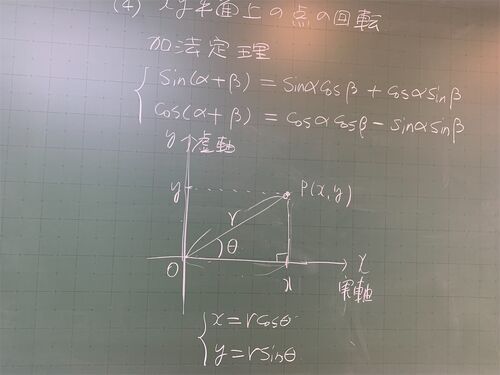 (4) xy平面上の点の回転
加法定理
sin(α+β) = sinαcosβ + cosαsinβ
cos(α+β) = cosαcosβ − sinαsinβ
y 虚軸
y
P(x,y)
r
θ
O
x
x
実軸
x=rcosθ
y=rsinθ